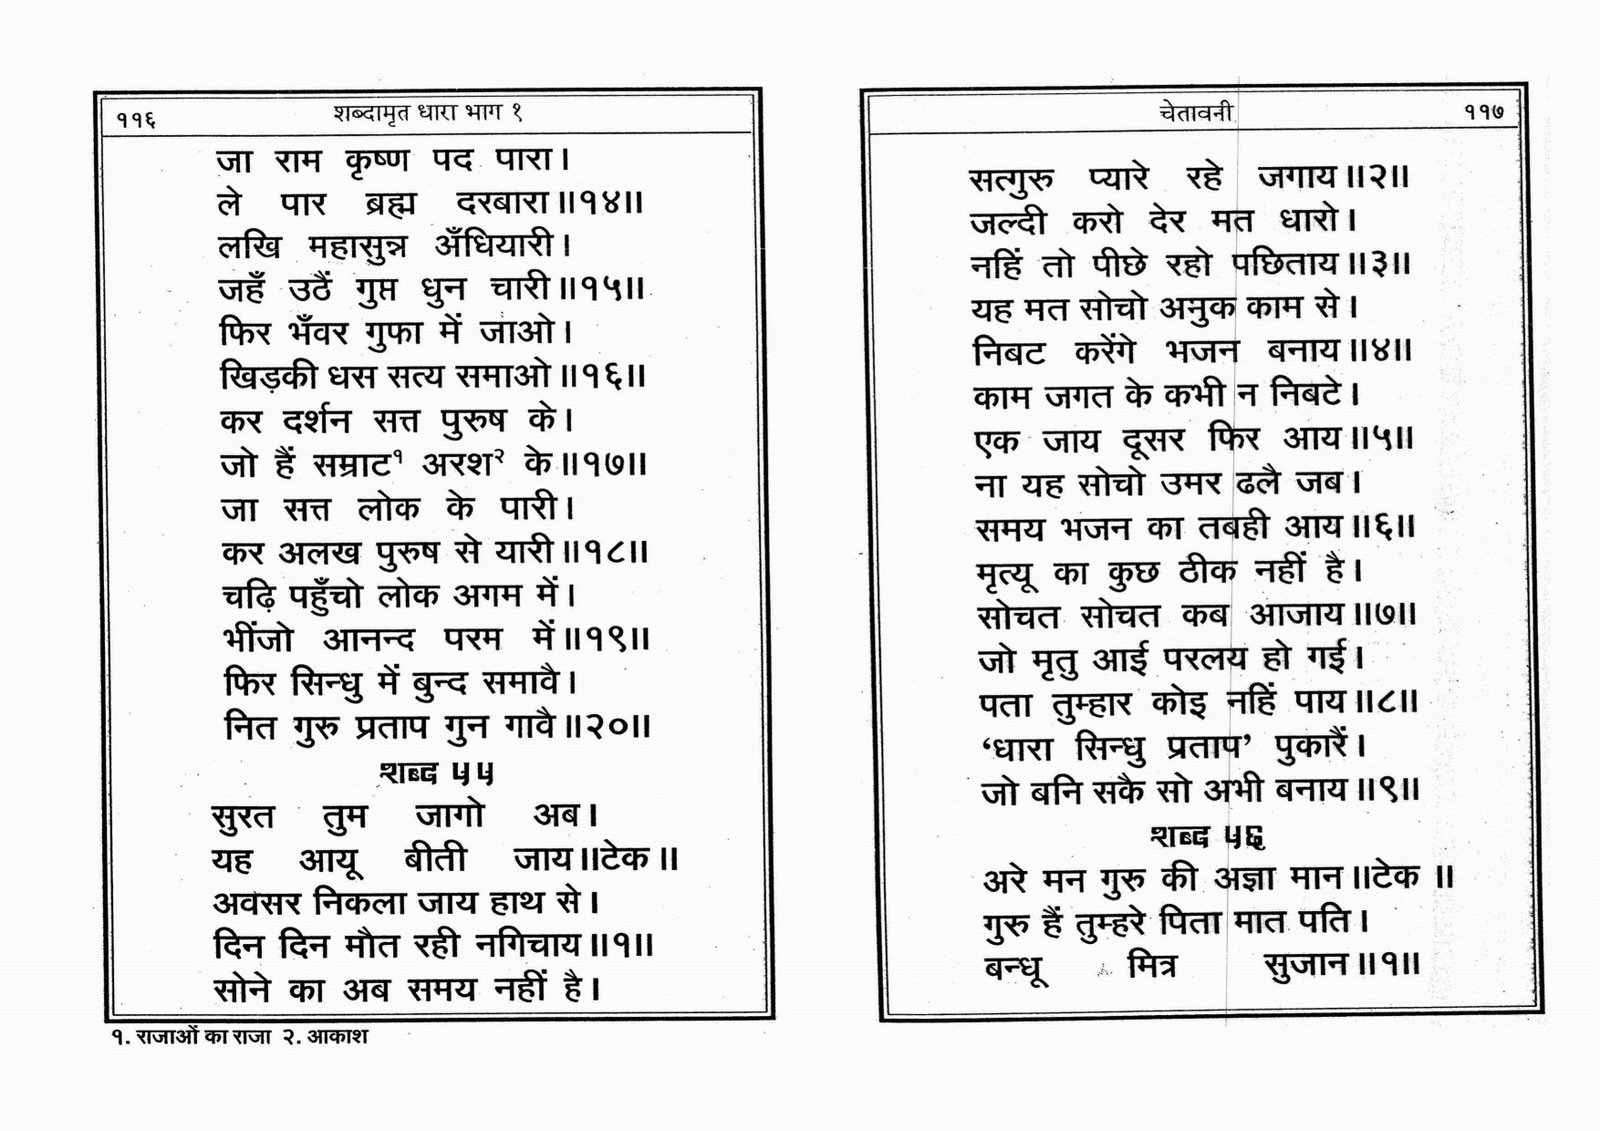 ११६
शब्दामृत धारा भाग १
जा राम कृष्ण पद पारा।
ले पार ब्रह्म दरबारा॥१४॥
लखि महासुन्न अँधियारी।
जहँ उठैं गुप्त धुन चारी॥१५॥
फिर भँवर गुफा में जाओ।
खिड़की धस सत्य समाओ॥१६॥
कर दर्शन सत्त पुरुष के।
जो हैं सम्राट१ अरश२ के॥१७॥
जा सत्त लोक के पारी।
कर अलख पुरुष से यारी॥१८॥
चढ़ि पहुँचो लोक अगम में।
भींजो आनन्द परम में॥१९॥
फिर सिन्धु में बुन्द समावै।
नित गुरु प्रताप गुन गावै॥२०॥
शब्द ५५
सुरत तुम जागो अब।
यह आयू बीती जाय॥टेक॥
अवसर निकला जाय हाथ से।
दिन दिन मौत रही नगिचाय॥१॥
सोने का अब समय नहीं है।
१. राजाओं का राजा २. आकाश
चेतावनी
११७
सत्गुरु प्यारे रहे जगाय॥२॥
जल्दी करो देर मत धारो।
नहिं तो पीछे रहो पछिताय॥३॥
यह मत सोचो अनुक काम से।
निबट करेंगे भजन बनाय॥४॥
काम जगत के कभी न निबटे।
एक जाय दूसर फिर आय॥५॥
ना यह सोचो उमर ढलै जब।
समय भजन का तबही आय॥६॥
मृत्यू का कुछ ठीक नहीं है।
सोचत सोचत कब आजाय॥७॥
जो मृतु आई परलय हो गई।
पता तुम्हार कोइ नहिं पाय॥८॥
‘धारा सिन्धु प्रताप’ पुकारैं।
जो बनि सकै सो अभी बनाय॥९॥
शब्द ५६
अरे मन गुरु की अज्ञा मान॥टेक॥
गुरु हैं तुम्हरे पिता मात पति।
बन्धू मित्र सुजान॥१॥